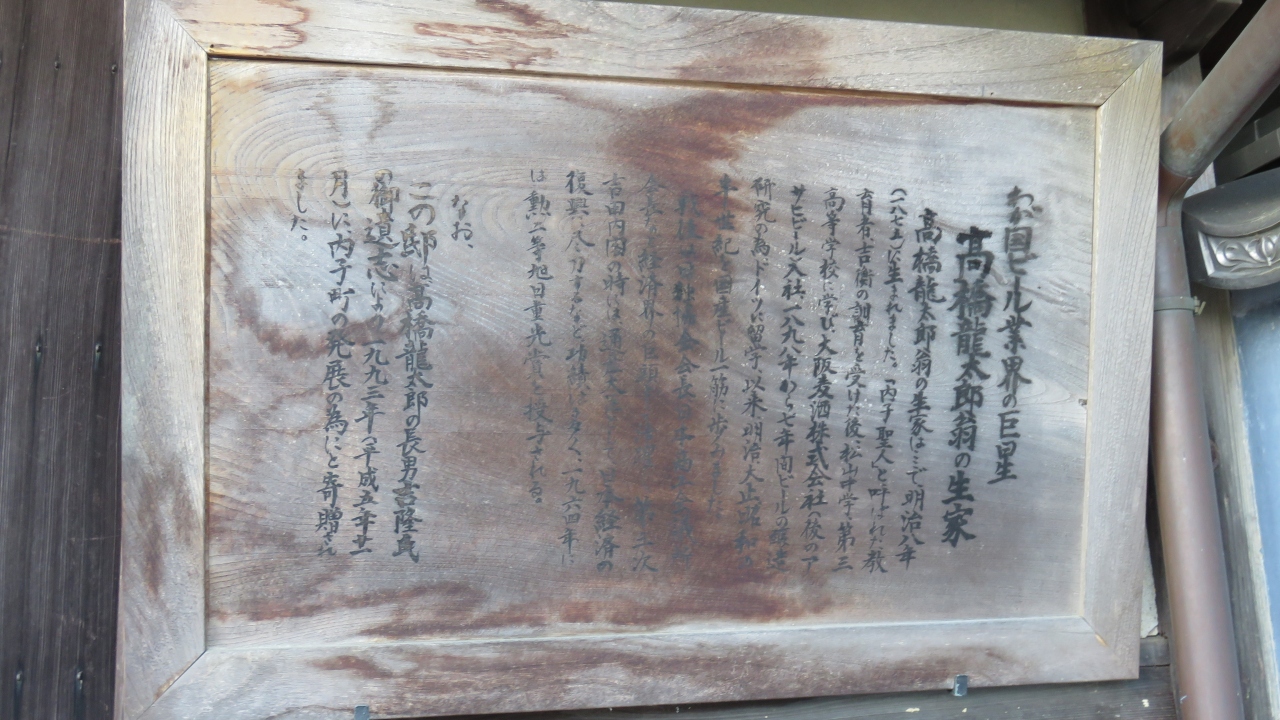 わが国ビール業界の巨星
高橋龍太郎翁の生家
高橋龍太郎翁の生家はここで明治八年
(一八七五)に生まれました。「内子聖人」と呼ばれた教
育者吉衡の訓育を受けた後、松山中学、第三
高等学校に学び、大阪麦酒株式会社(後のア
サヒビール)入社、一八九八年から七年間ビールの醸造
研究の為ドイツに留学、以来明治、大正、昭和の
半世紀を国産ビール一筋に歩みました
戦後は
会長など経済界の巨頭 第三次
吉田内閣の時には通産大臣として日本経済の
復興に尽力するなど功績は多く、一九六四年に
は勲二等旭日重光賞を授与される。
なお、
この邸は、高橋龍太郎の長男吉隆氏
の御遺志により一九九三年(平成五年廿一
月)に内子町の発展の為にと寄贈され
ました。